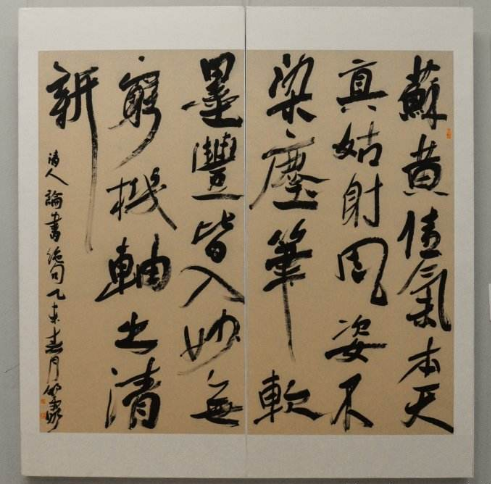 蘇黄佳氣本天
真姑射風姿不
染塵筆軟
墨豐皆入妙無
窮機軸出清
新
論書絶句乙亥春月